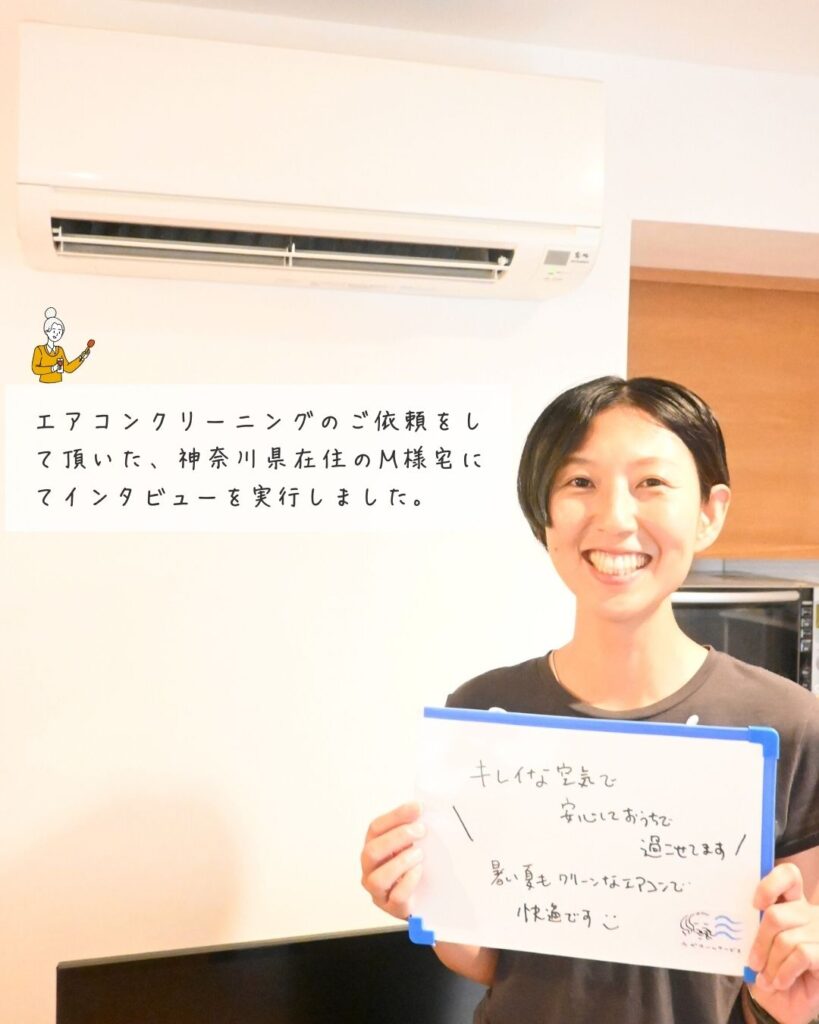 エアコンクリーニングのご依頼をし
て頂いた、神奈川県在住のM様宅に
てインタビューを実行しました。
キレイな空気で
安心しておうちで
過ごせてます
暑い夏も クリーンなエアコンで
快適です